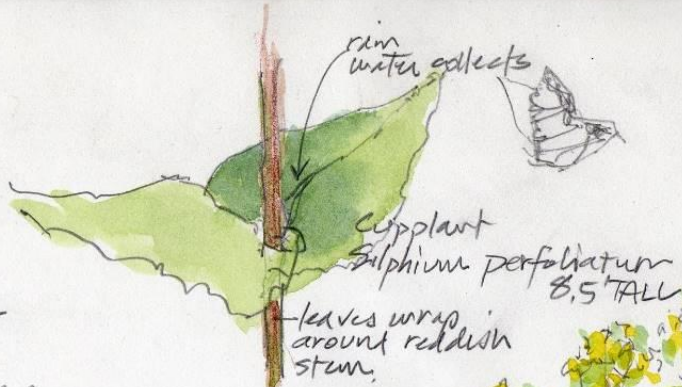 rain
water collects
Cupplant
Silphium perfoliatum
8.5' TALL
leaves wrap
around reddish
stem.